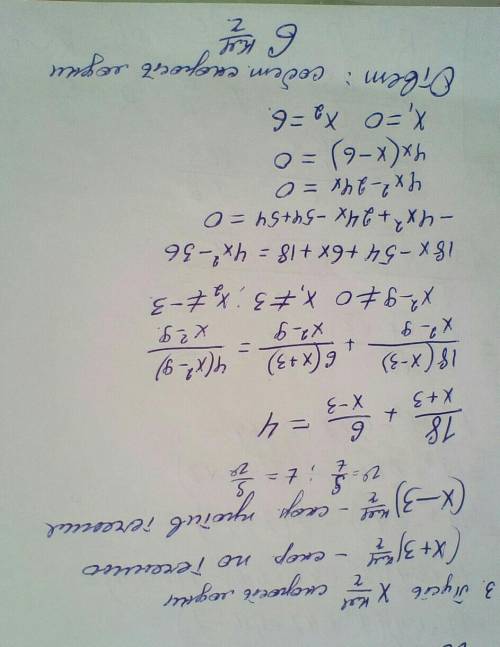 3. Пусть x км/ч скорость лодки
(x+3) км/ч - скор. по течению
(x-3) км/ч - скор. против течения
v = S/t ; t = S/v
18/(x+3) + 6/(x-3) = 4
18(x-3)/(x²-9) + 6(x+3)/(x²-9) = 4(x²-9)/(x²-9)
x²-9 ≠ 0 x₁ ≠ 3 ; x₂ ≠ -3
18x - 54 + 6x + 18 = 4x² - 36
-4x² + 24x - 54 + 54 = 0
4x² - 24x = 0
4x(x-6) = 0
x₁ = 0 x₂ = 6.
Ответ: собст. скорость лодки
6 км/ч.